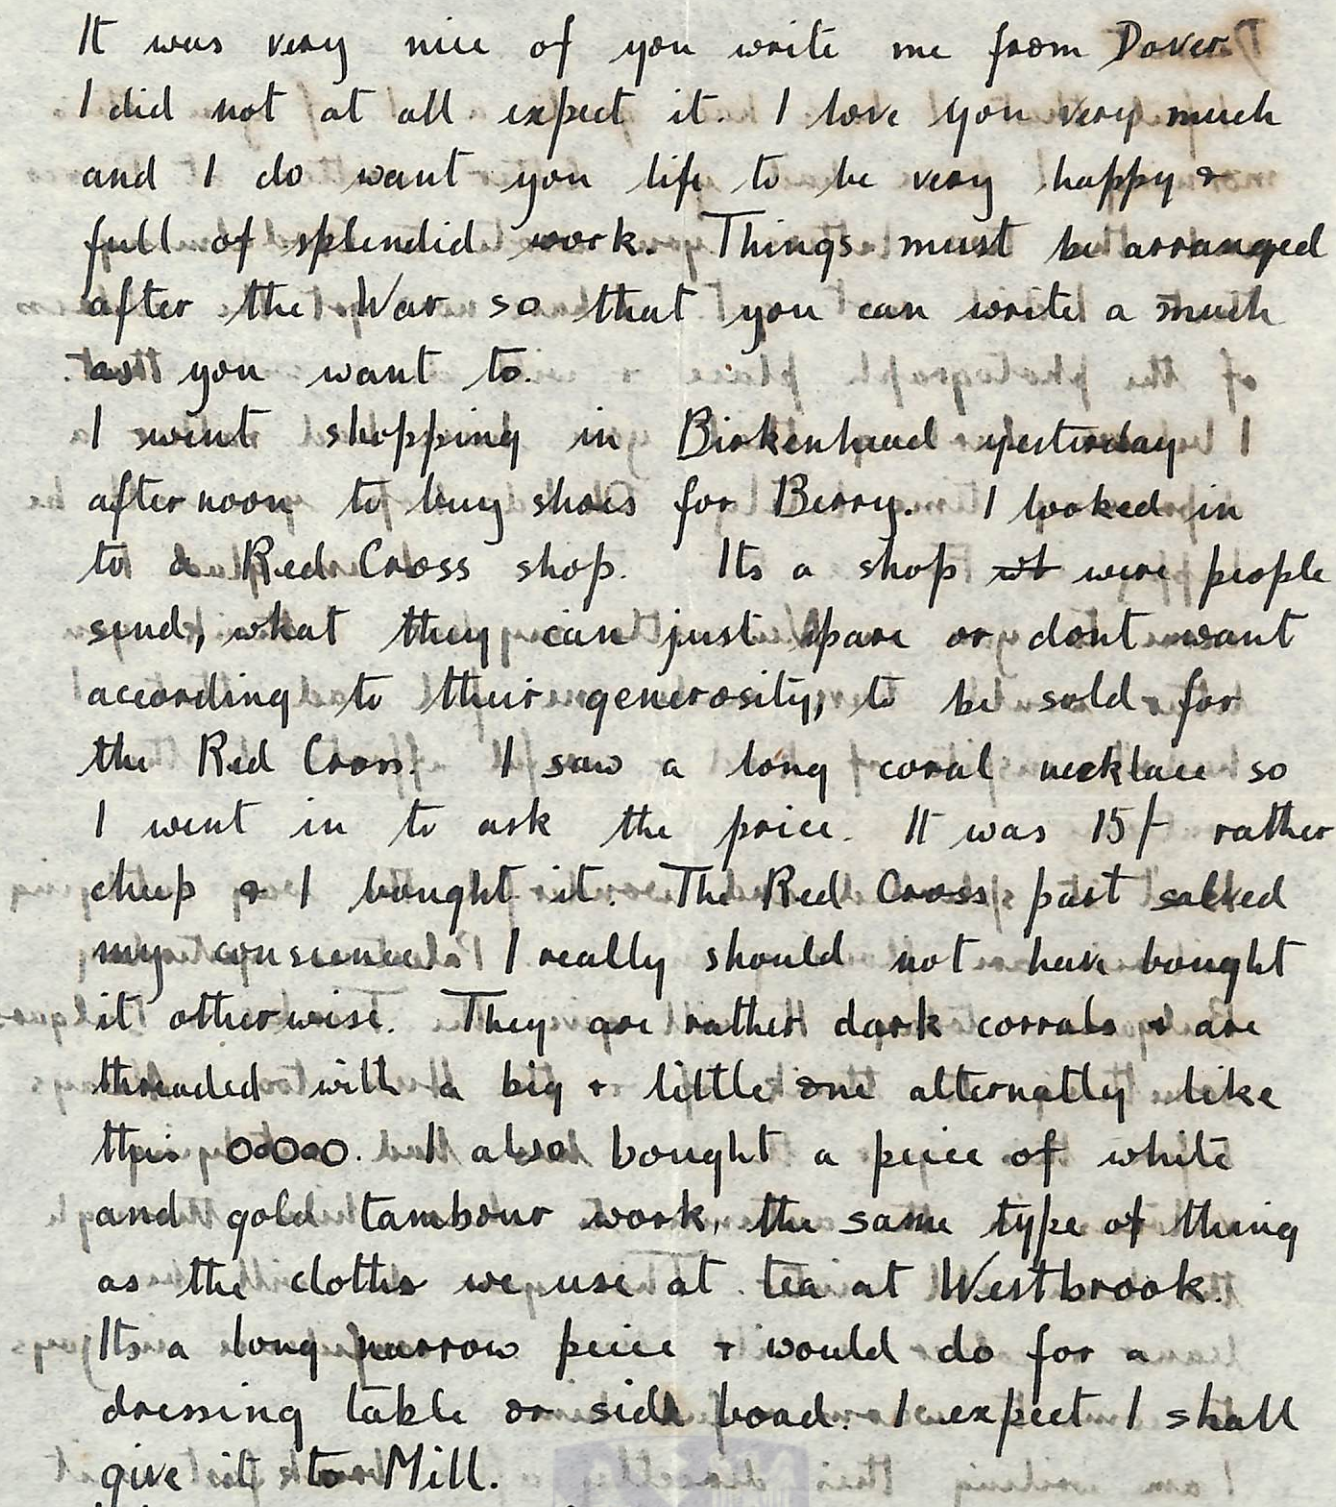 It was very nice of you write me from Dover.
I did not at all expect it. I love you very much
and I do want you life to be very happy &
full of splendid work. Things must be arranged
after the War so that you can write a much
as you want to.
I went shopping in Birkenhead yesterday
afternoon to buy shoes for Berry. I looked in
to a Red Cross shop. Its a shop wh were people
send, what they can just spare or dont want
according to their generosity, to be sold for
the Red Cross. I saw a long coral necklace so
I went in to ask the price. It was 15/- rather
cheep & I bought it. The Red Cross part salved
my conscience. I really should not have bought
it otherwise. They are rather dark corrals & are
threaded with a big & little one alternatly like
this OoOoO. I also bought a peice of white
and gold tambour work, the same type of thing
as the cloths we use at tea at Westbrook.
Its a long narrow peice & would do for a
dressing table or side boad. I expect I shall
give it to Mill.